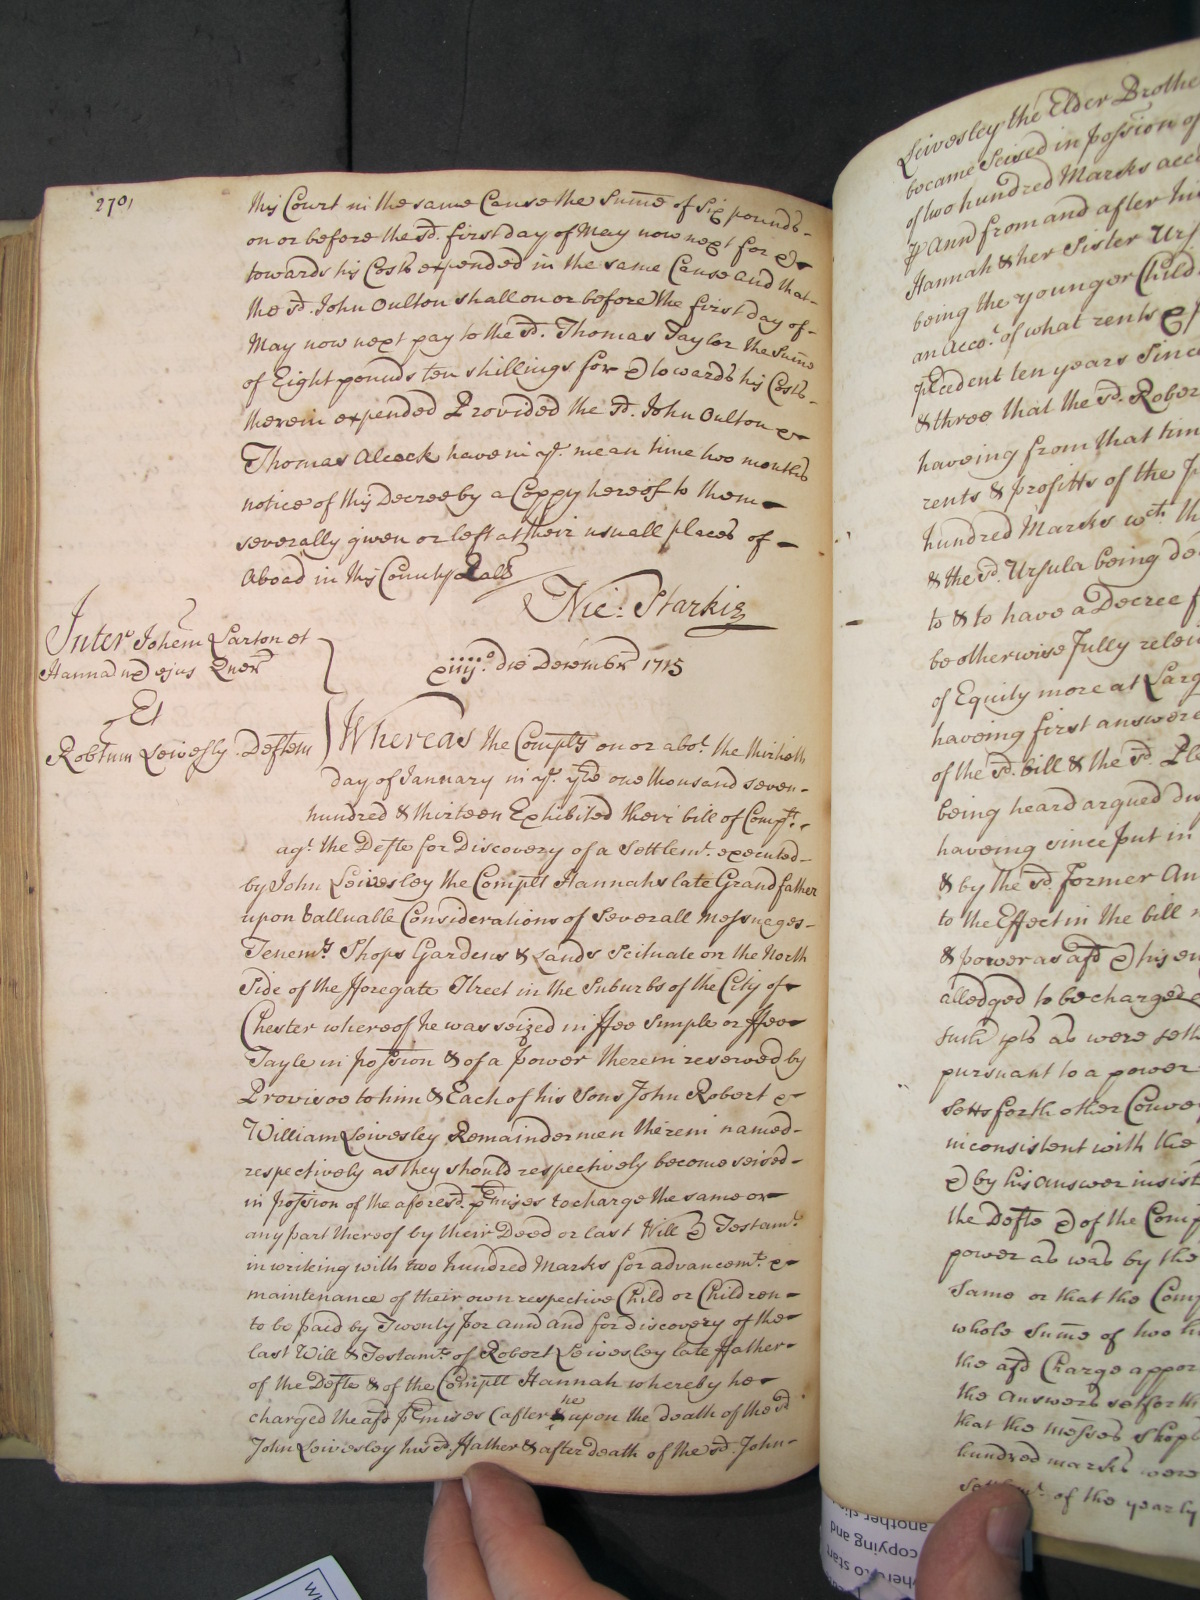 270,
this Court in the same Cause the Sume of Six pounds
on or before the sd. first day of May now next for &
towards his Costs expended in the same Cause and that
the sd. John Oulton shall on or before the first day of
May now next pay to the sd. Thomas Taylor the Sume
of Eight pounds ten shillings for & towards his Costs
therein expended Provided the sd. John Oulton &
Thomas Alcock have in ye. mean time two months
notice of this Decree by a Coppy hereof to them
severally given or left at their usuall places of
Aboad in this County
Nic: Starkie
Inter Johem Larton et
Hannā ux ejus Quer
Et
Robtum Leivesly Deftem
xiiijo. die Decembr 1715
Whereas the Complts on or abot. the thirtieth
day of January in ye. year one thousand seven
hundred & thirteen Exhibited their bill of Complt.
agt. the Defte for Discovery of a Settlemt. executed
by John Leivesley the Complt Hannahs late Grandfather
upon valluable Considerations of Severall messuages
Tenemts Shops Gardens & Lands Scituate on the North
Side of the fforegate Street in the Suburbs of the City of
Chester whereof he was seized in ffee simple or ffee
Tayle in possion & of a power therein reserved by
Provisoe to him & Each of his Sons John Robert &
William Leivesley Remaindermen therein named
respectively as they should respectively become seised
in possion of the aforesd. pmises to charge the same or
any part thereof by their Deed or last Will & Testamt.
in writeing with two hundred Marks for advancemt. &
maintenance of their own respective Child or Children
to be paid by Twenty p or ann and for discovery of the
last Will & Testamt. of Robert Leivesley late ffather
of the Defte & of the Complt Hannah whereby he
charged the afd pmises (after he upon the death of the sd
John Leivesley his sd. ffather & after death of the sd. John
Leivesley the Elder Brothe
became Seised in possion of
of two hundred Marks acc
p Ann from and after hi
Hannah & her Sister Urs
being the younger Child
an acco.t of what rents & p
pcedent ten years Since
& three that the sd. Rober
haveing from that tim
rents & profitts of the p
hundred Marks wch. th
& the sd. Ursula being de
to & to have a Decree f
be otherwise fully relei
of Equity more at Larg
haveing first answere
of the sd. bill & the sd. Ple
being heard argued
haveing since put in
& by the sd. former An
to the Effect in the bill
& power as afd & his
alledged to be charge
such pts as were sett
pursuant to a power
Setts forth other Conve
inconsistent with the
& by his answer insist
the Defte & of the Comp
power as was by the
Same or that the Comp
whole Sume of two h
the afd Charge appor
the answers setforth
that the messes shops
hundred marks were
of the yearly
where to start
copying and
another